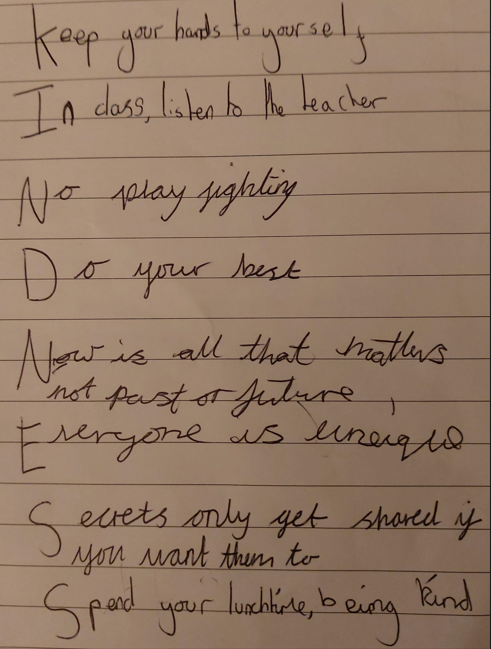 Keep your hands to yourself
In class, listen to the teacher
No play fighting
Do your best
Now is all that matters
not past or future,
Everyone is uneique
Secrets only get shared if
you want them to
Spend your lunchtime, being kind